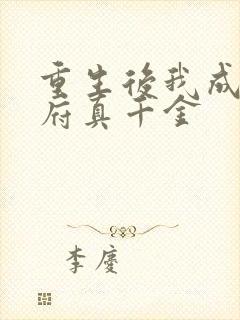 重生後我成
府真千金
李慶